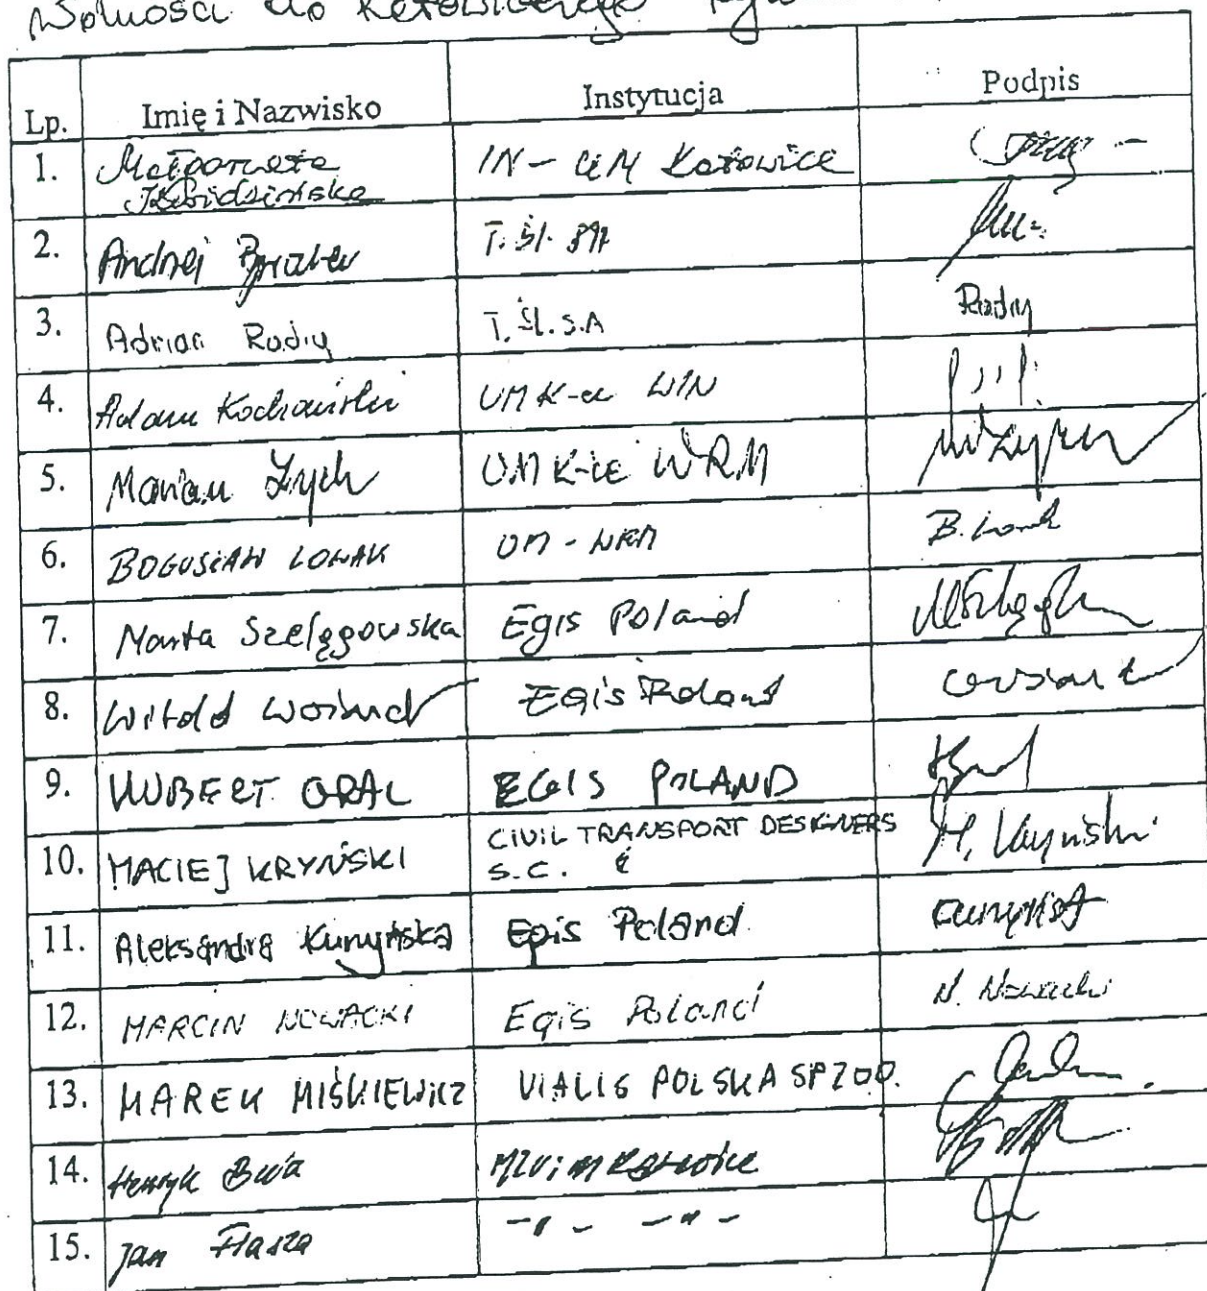 Wolności do Katowickiego
Lp. Imię i Nazwisko Instytucja Podpis
1. Małgorzata IN - UM Katowice
2. Andrzej T. Śl. SA
3. Adrian Rudny T. Śl. S.A Rudny
4. Adam Kochański UM K-ce WIN
5. Marian Zych UM K-ce WRM
6. BOGUSŁAW LOWAK UM - WRM B. Lowak
7. Marta Szelągowska Egis Poland
8. Witold Egis Poland
9. HUBERT ORAL EGIS POLAND
10. MACIEJ KRYŃSKI CIVIL TRANSPORT DESIGNERS S.C. M. Kryński
11. Aleksandra Kunyńska Egis Poland
12. MARCIN NOWACKI Egis Poland M. Nowacki
13. MAREK MIŚKIEWICZ VIALIS POLSKA SP ZOO.
14. Henryk MZUiM Katowice
15. Jan Flasza -"- -"-